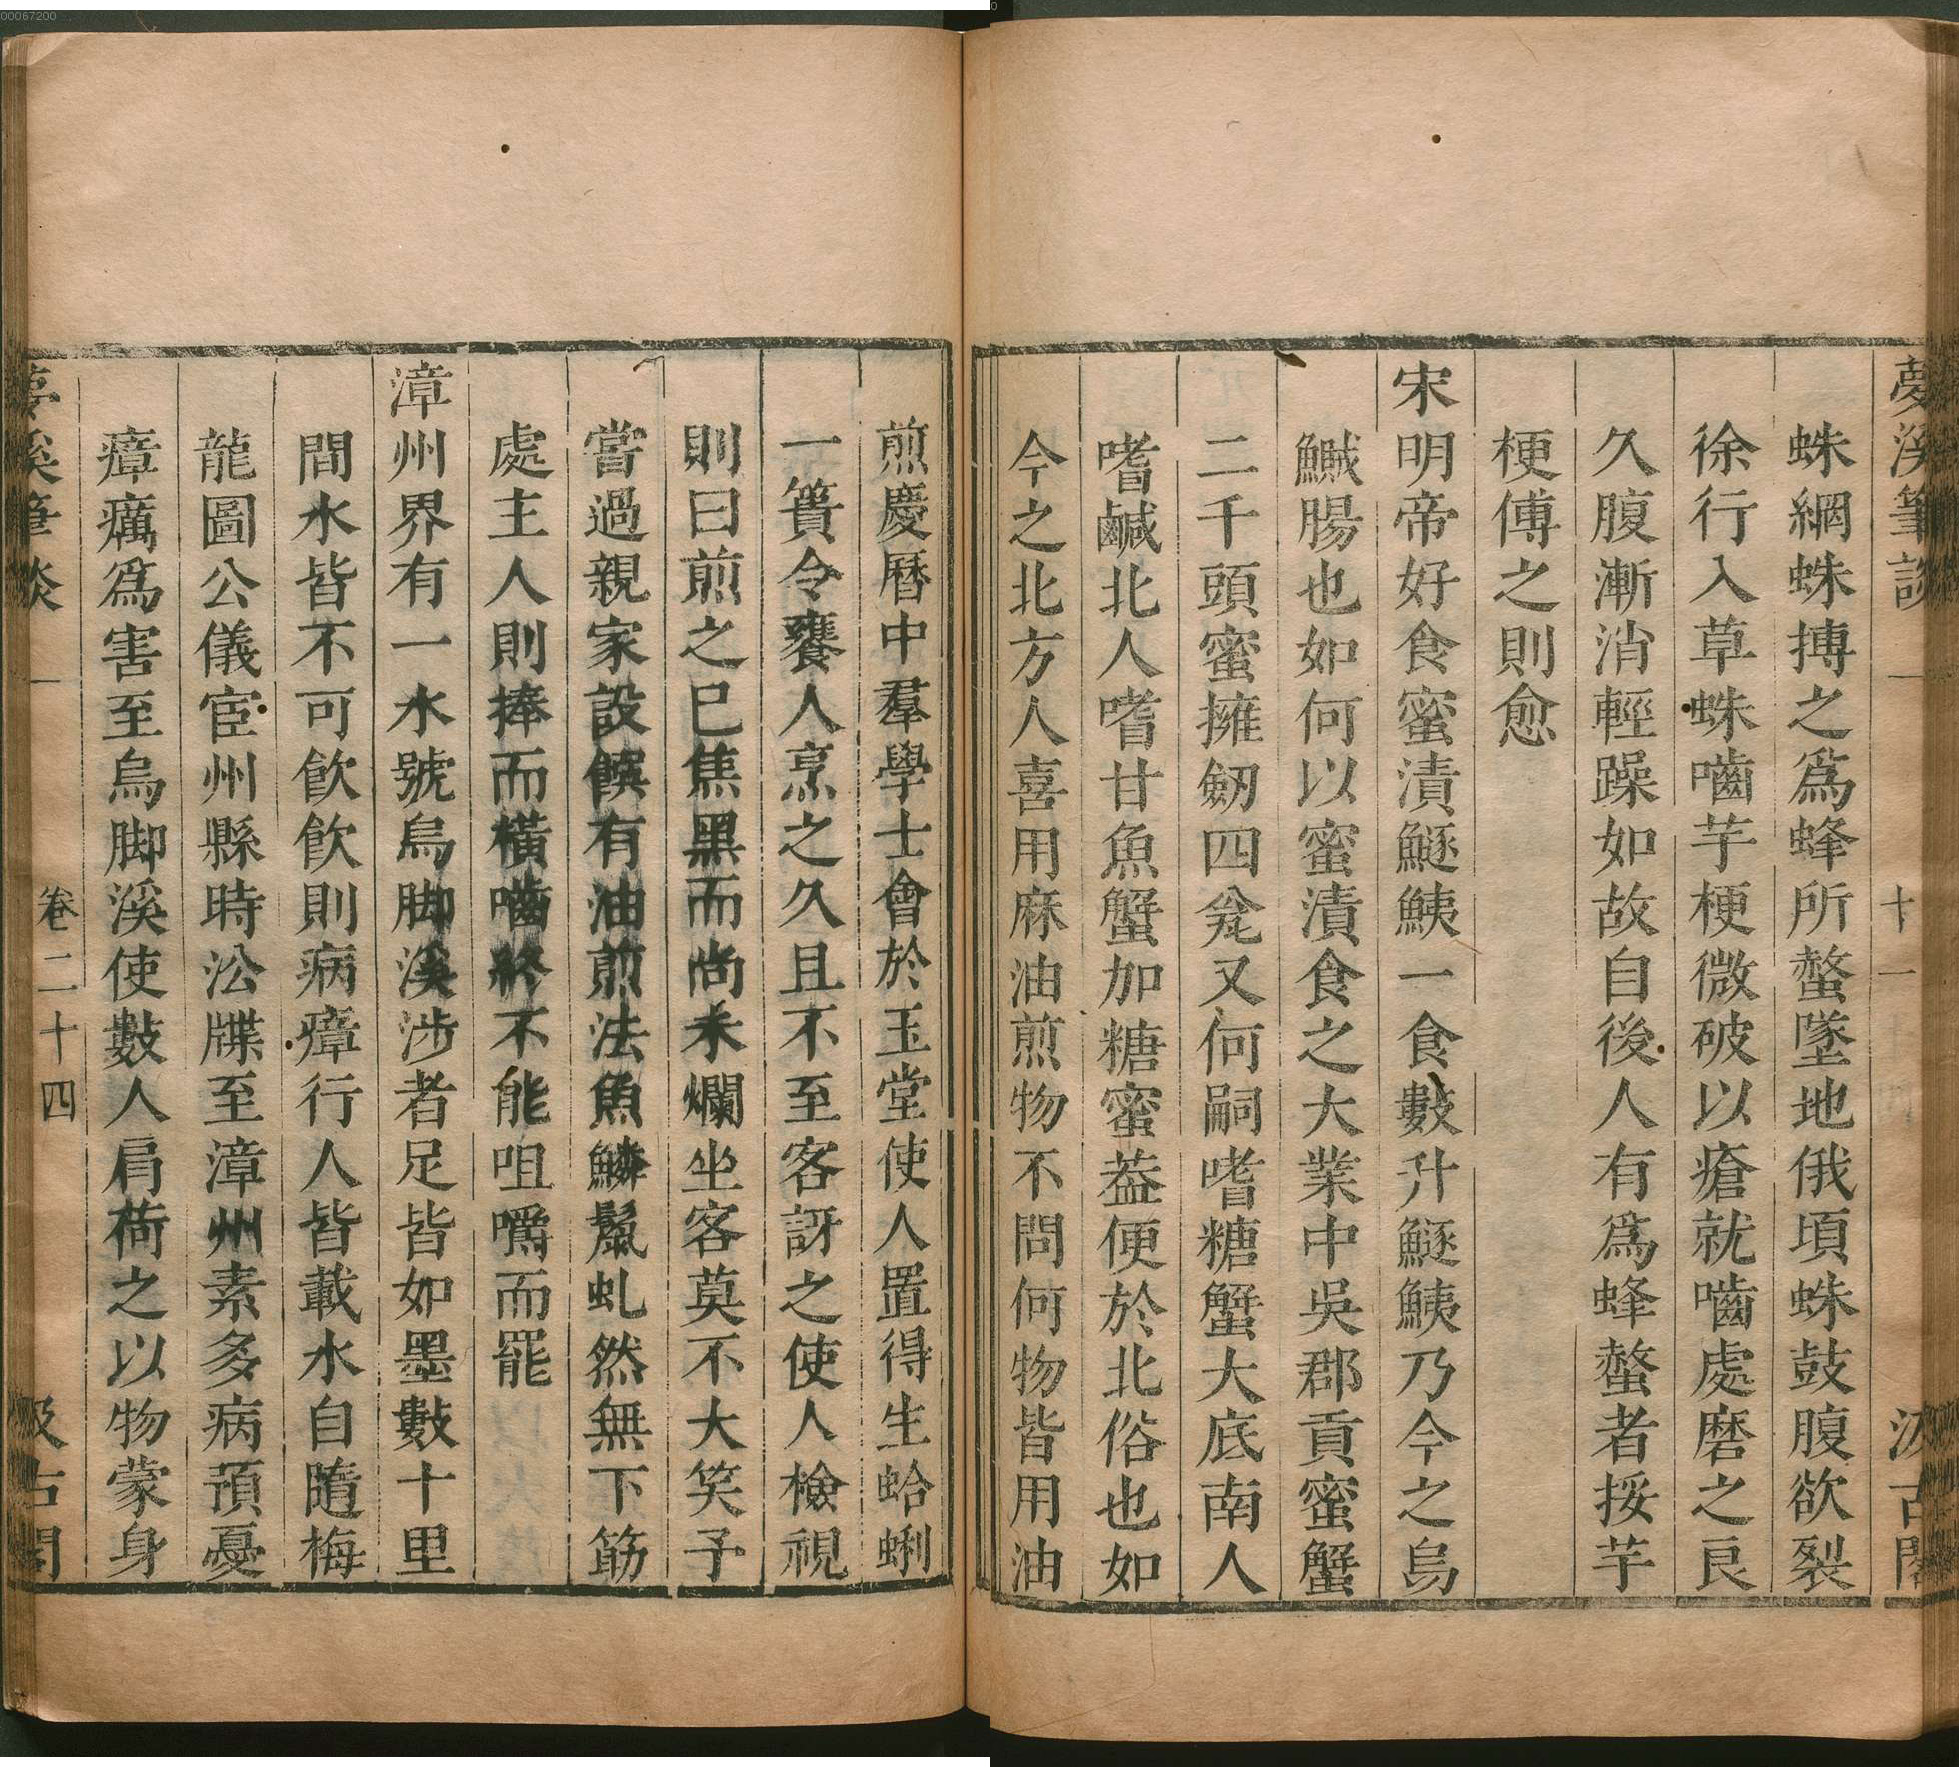 夢溪筆談 十一 汲古閣
蛛網蛛搏之為蜂所螫墜地俄頃蛛鼓腹欲裂
徐行入草蛛嚙芋梗微破以瘡就嚙處磨之良
久腹漸消輕躁如故自後人有為蜂螫者挼芋
梗傅之則愈
宋明帝好食蜜漬鱁鮧一食數升鱁鮧乃今之烏
鰄腸也如何以蜜漬食之大業中吳郡貢蜜蟹
二千頭蜜擁劒四瓮又何嗣嗜糖蟹大底南人
嗜鹹北人嗜甘魚蟹加糖蜜葢便於北俗也如
今之北方人喜用麻油煎物不問何物皆用油
煎慶曆中羣學士會於玉堂使人置得生蛤蜊
一簣令饔人烹之久且不至客訝之使人檢視
則曰煎之已焦黑而尚未爛坐客莫不大笑予
嘗過親家設饌有油煎法魚鱗鬣虬然無下筯
處主人則捧而橫嚙終不能咀嚼而罷
漳州界有一水號烏脚溪涉者足皆如墨數十里
間水皆不可飲飲則病瘴行人皆載水自隨梅
龍圖公儀宦州縣時沿牒至漳州素多病預憂
瘴癘為害至烏脚溪使數人肩荷之以物蒙身
夢溪筆談 卷二十四 汲古閣
00067200